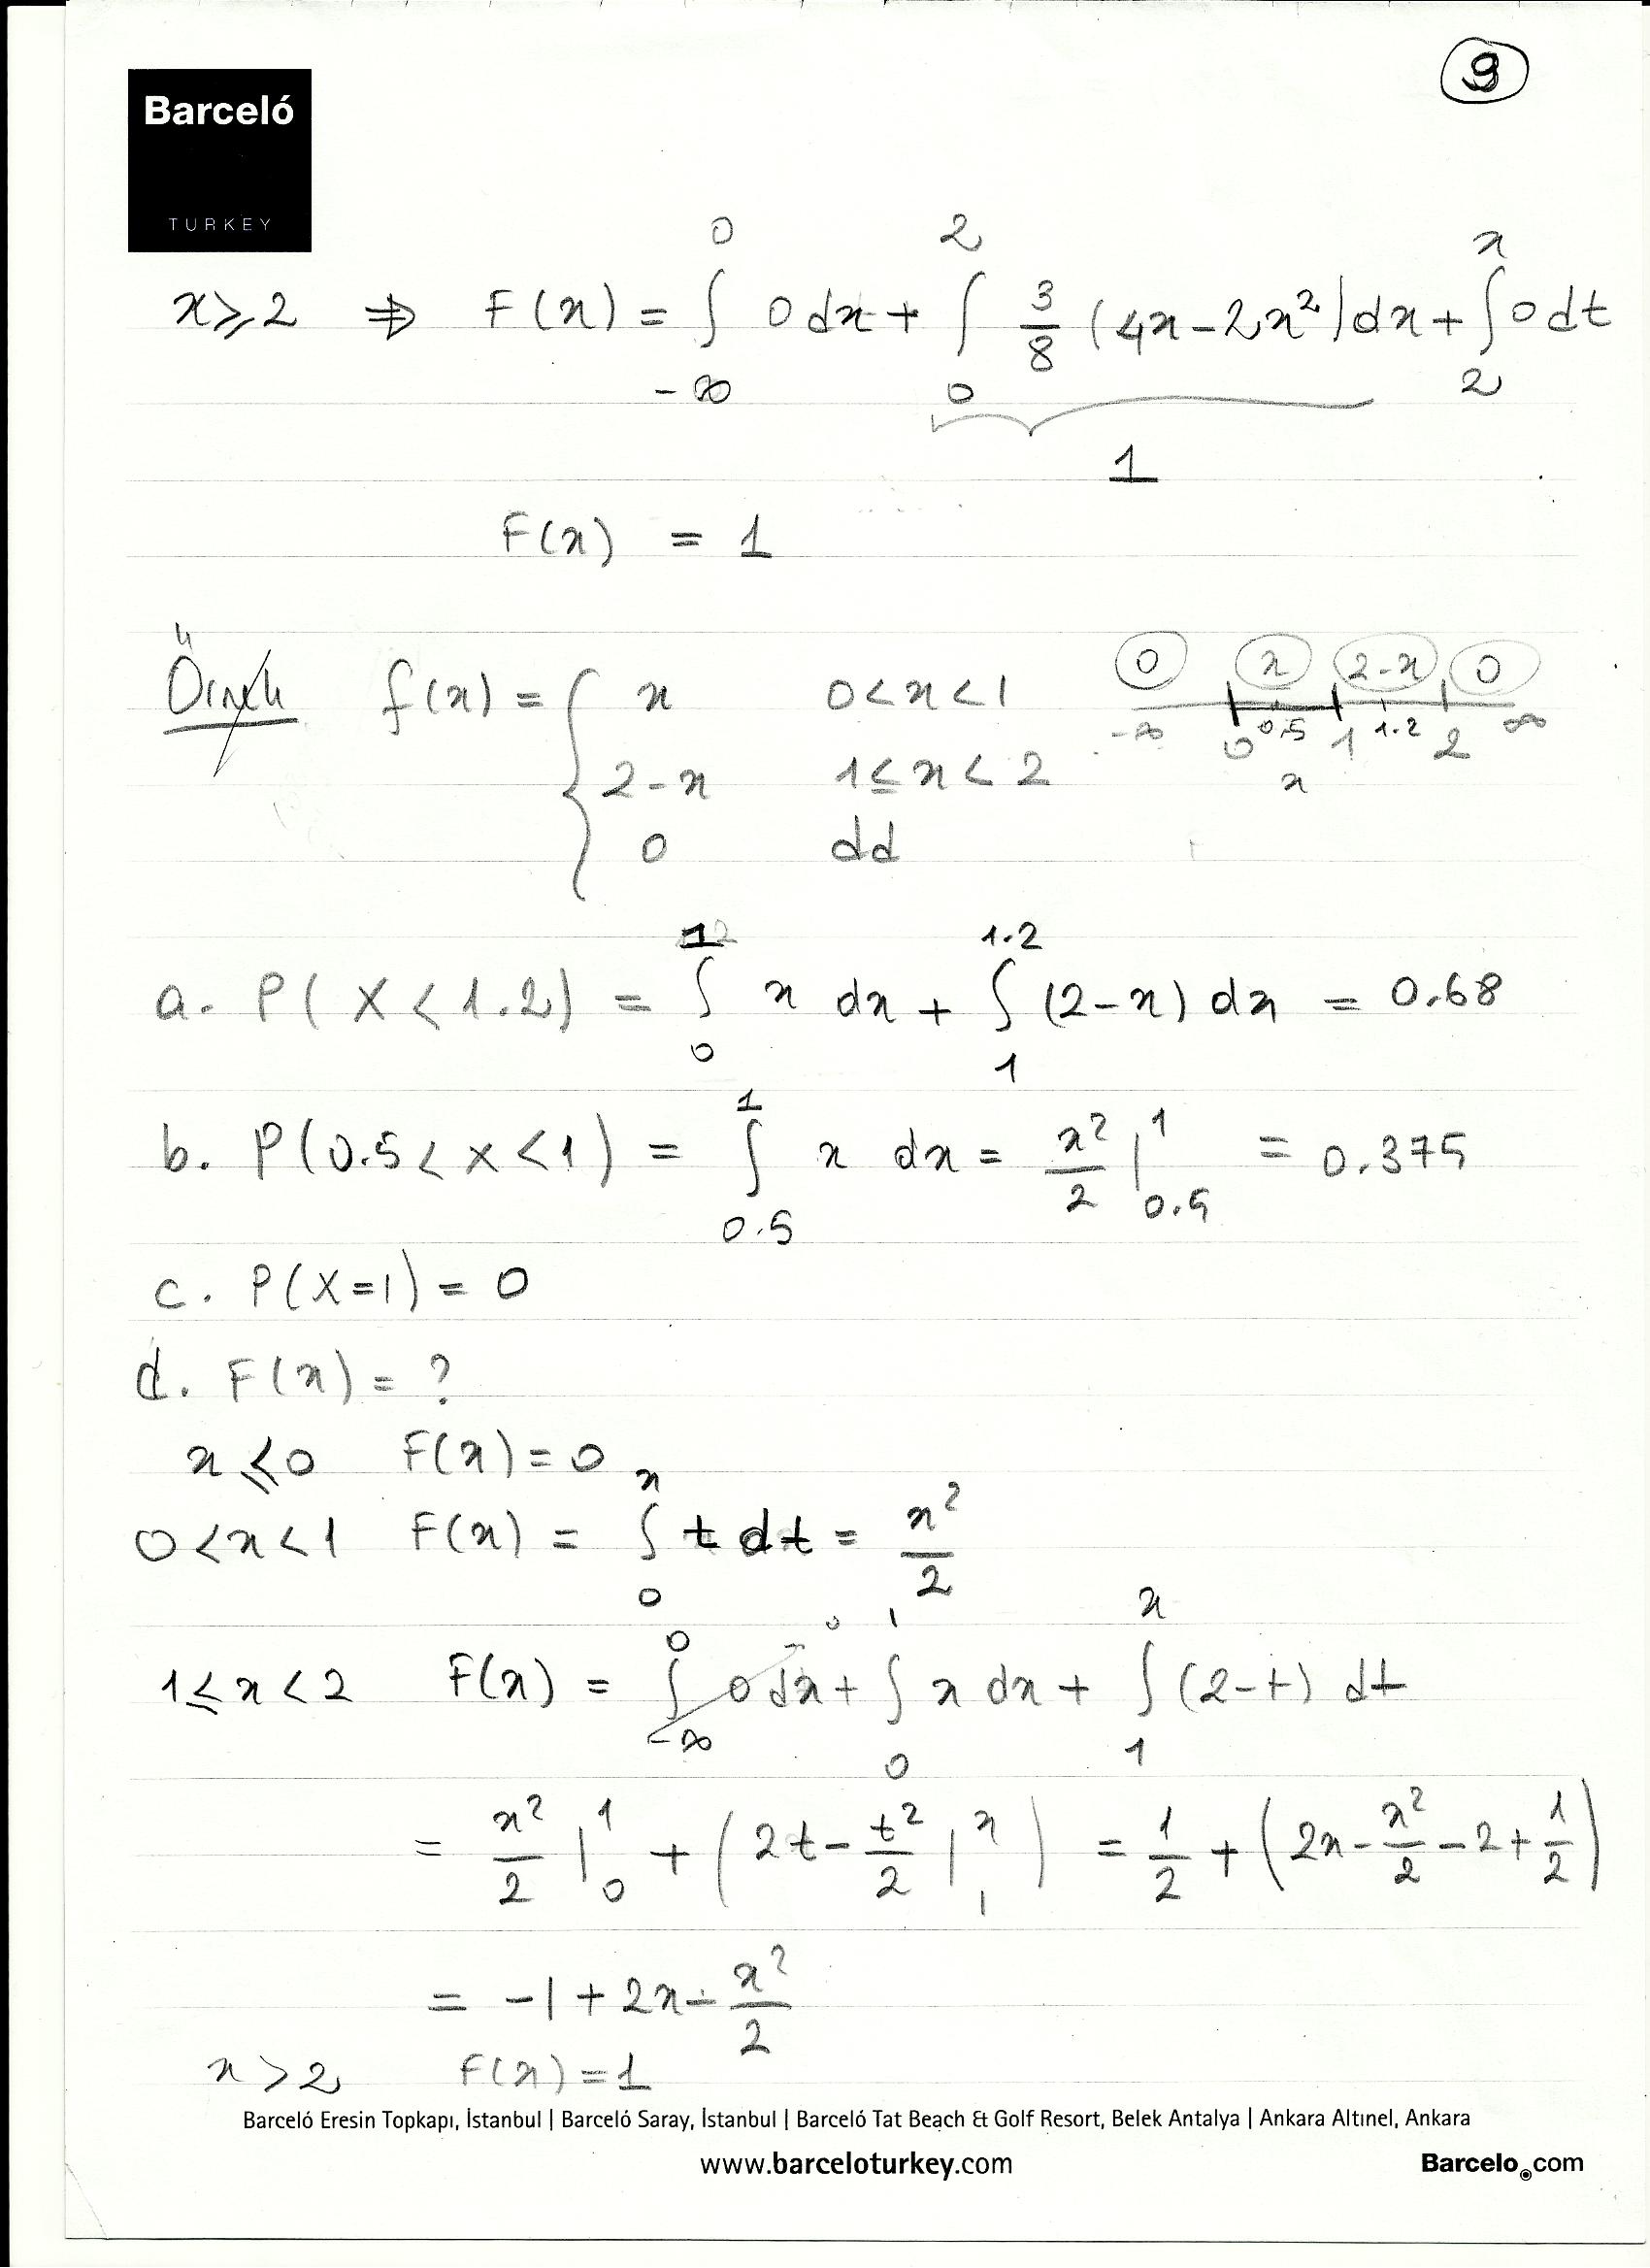 9
Barceló
TURKEY
x ≥ 2 ⇒ F(x) = ∫_{-∞}^{0} 0 dx + ∫_{0}^{2} 3/8 (4x - 2x²) dx + ∫_{2}^{x} 0 dt
1
F(x) = 1
Örnek f(x) = { x 0 < x < 1
2 - x 1 ≤ x < 2
0 dd
0 x 2-x 0
-∞ 0 0.5 1 1.2 2 ∞
x
a. P(X < 1.2) = ∫_{0}^{1} x dx + ∫_{1}^{1.2} (2-x) dx = 0.68
b. P(0.5 < x < 1) = ∫_{0.5}^{1} x dx = x²/2 |_{0.5}^{1} = 0.375
c. P(X=1) = 0
d. F(x) = ?
x ≤ 0 F(x) = 0
0 < x < 1 F(x) = ∫_{0}^{x} t dt = x²/2
1 ≤ x < 2 F(x) = ∫_{-∞}^{0} 0 dx + ∫_{0}^{1} x dx + ∫_{1}^{x} (2-t) dt
0
= x²/2 |_{0}^{1} + (2t - t²/2 |_{1}^{x}) = 1/2 + (2x - x²/2 - 2 + 1/2)
= -1 + 2x - x²/2
x > 2 F(x) = 1
Barceló Eresin Topkapı, İstanbul | Barceló Saray, İstanbul | Barceló Tat Beach & Golf Resort, Belek Antalya | Ankara Altınel, Ankara
www.barceloturkey.com
Barcelo.com